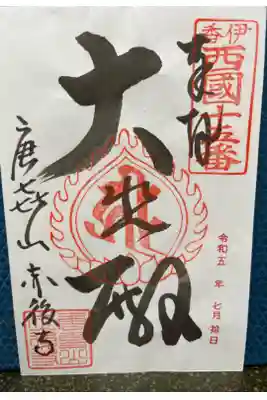 香伊
西國十五番
奉拝
大悲殿
令和五年 七月 拾日
唐㐂山 赤後寺